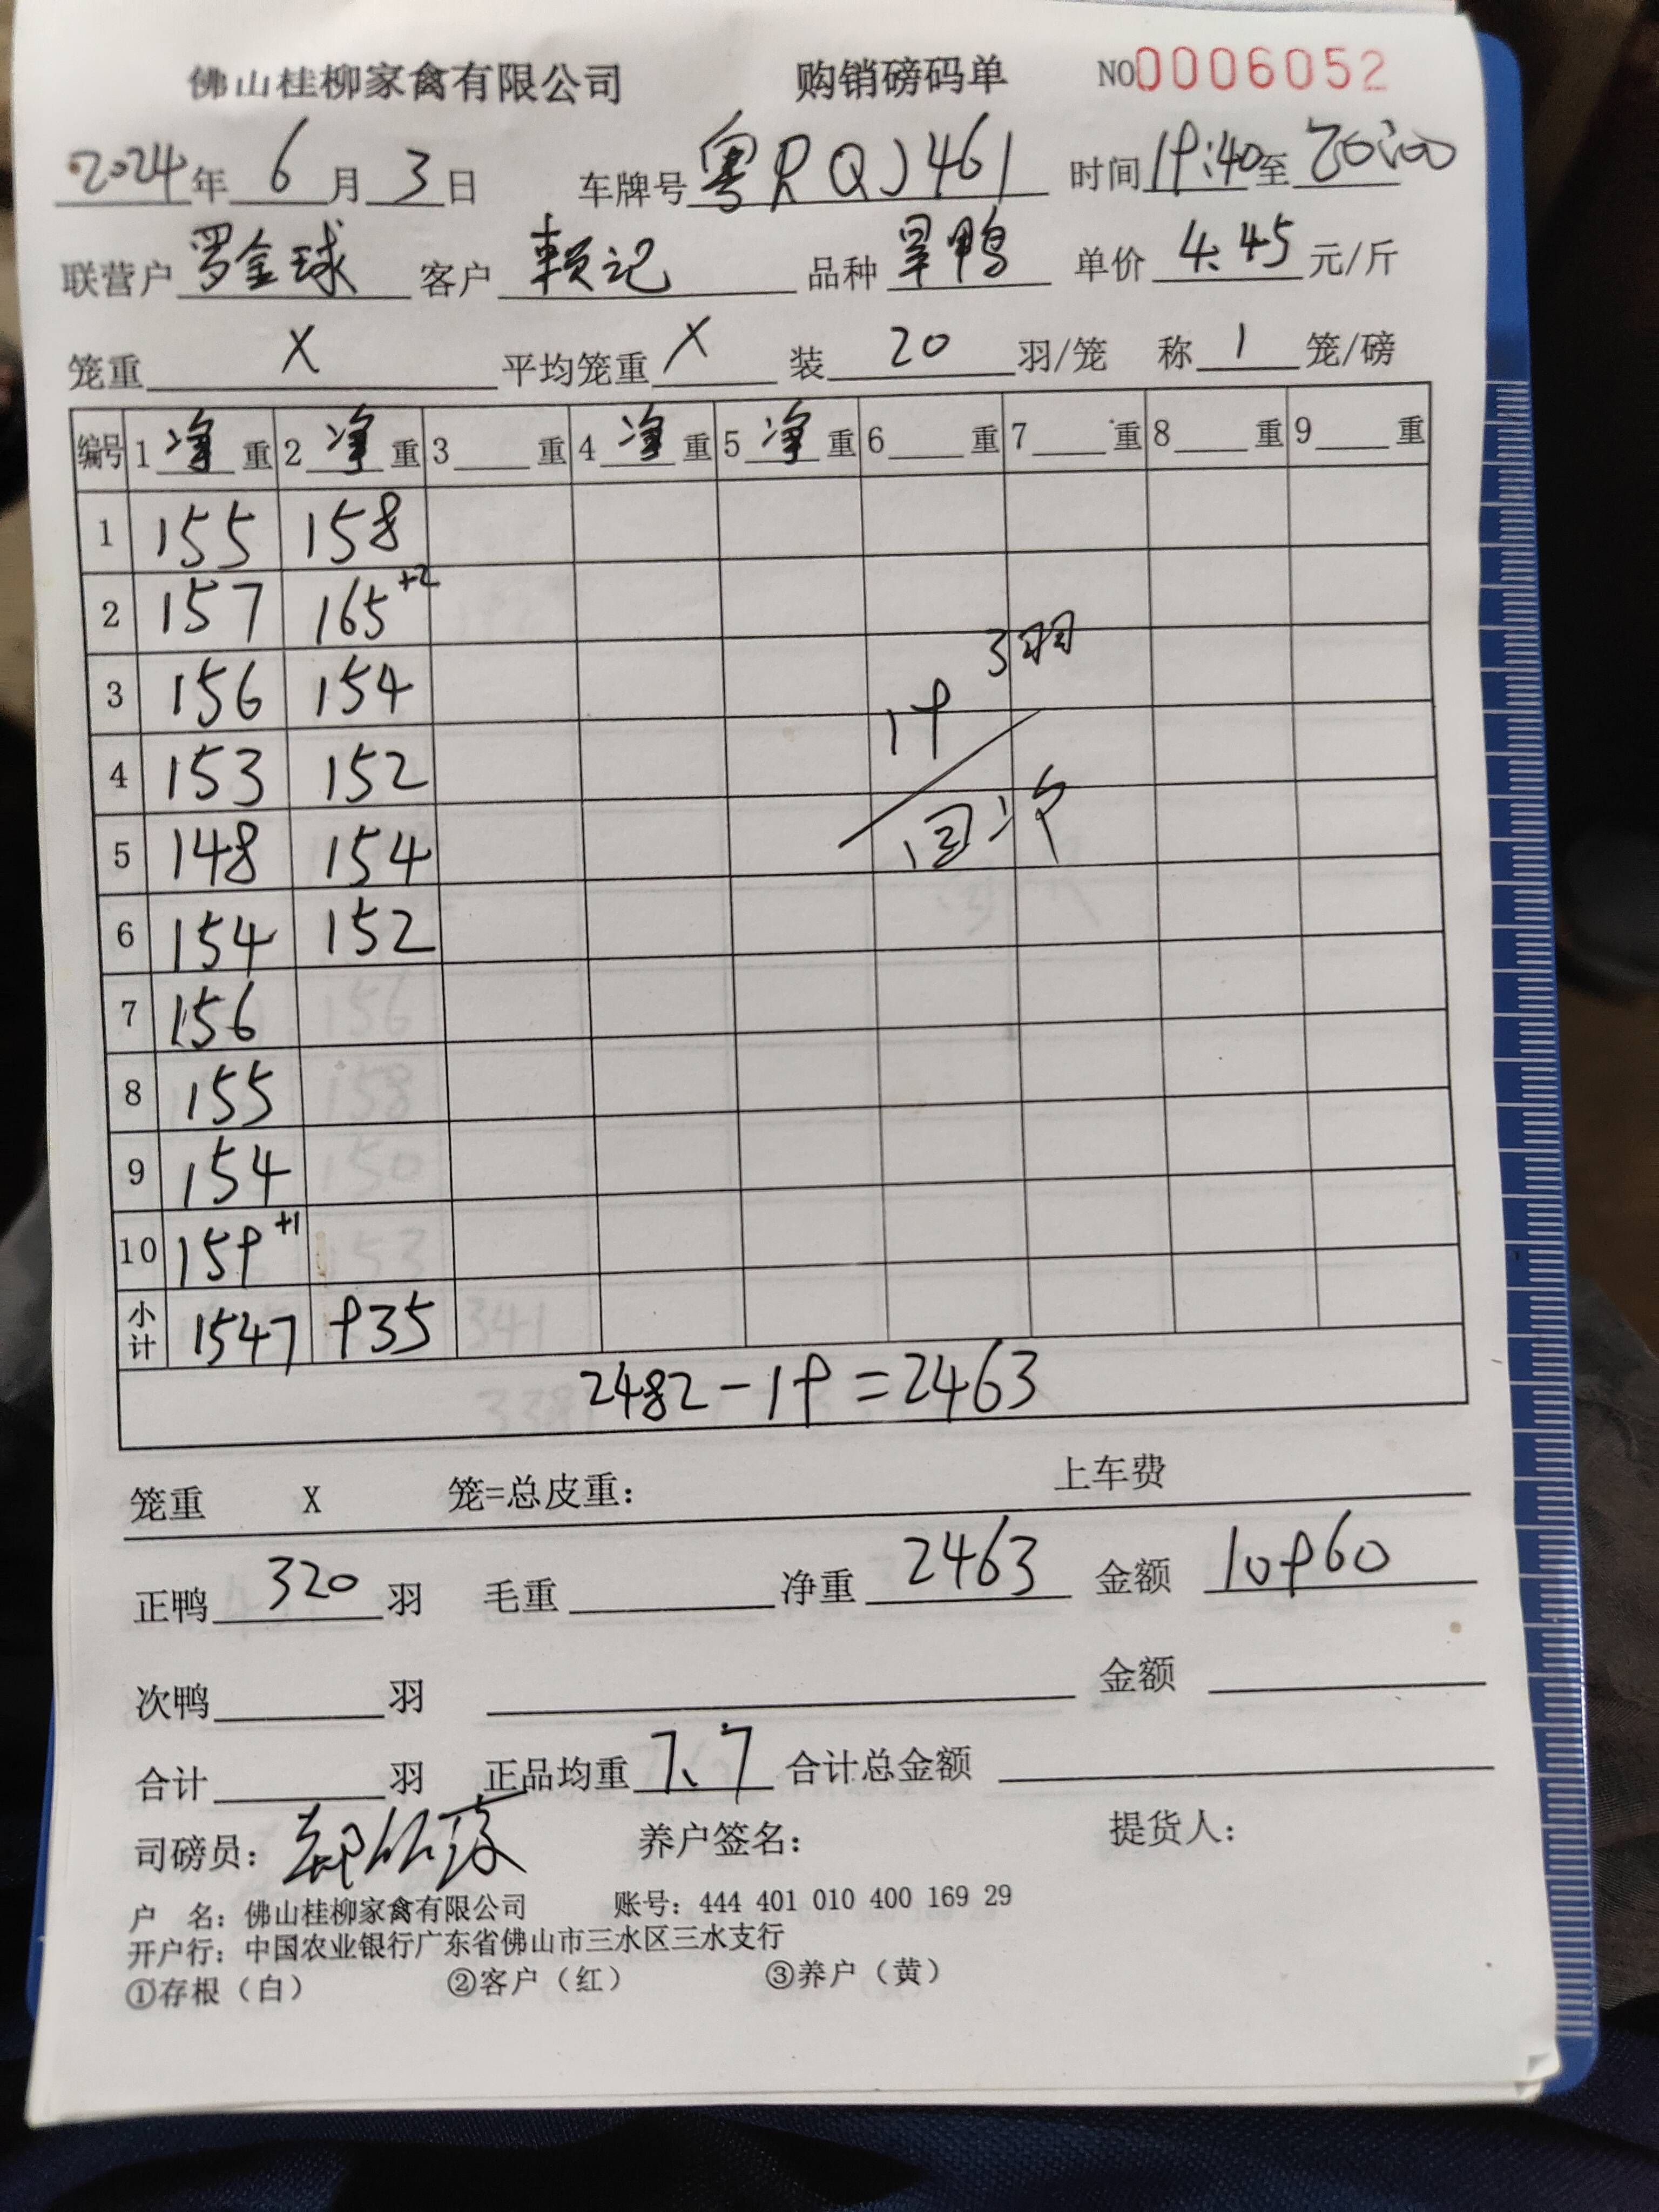 佛山桂柳家禽有限公司 购销磅码单 NO0006052
2024年 6月 3日 车牌号 粤RQJ461 时间 19:40至 20:00
联营户 罗金球 客户 赖记 品种 旱鸭 单价 4.45 元/斤
笼重 X 平均笼重 X 装 20 羽/笼 称 1 笼/磅
编号 1 净 重 2 净 重 3 重 4 净 重 5 净 重 6 重 7 重 8 重 9 重
1 155 158
2 157 165+2
3羽
3 156 154
19
4 153 152
回次
5 148 154
6 154 152
7 156
8 155
9 154
10 159+1
小计 1547 935
2482-19=2463
笼重 X 笼=总皮重: 上车费
正鸭 320 羽 毛重 净重 2463 金额 10960
次鸭 羽 金额
合计 羽 正品均重 7.7 合计总金额
司磅员: 养户签名: 提货人:
户 名: 佛山桂柳家禽有限公司 账号: 444 401 010 400 169 29
开户行: 中国农业银行广东省佛山市三水区三水支行
①存根(白) ②客户(红) ③养户(黄)